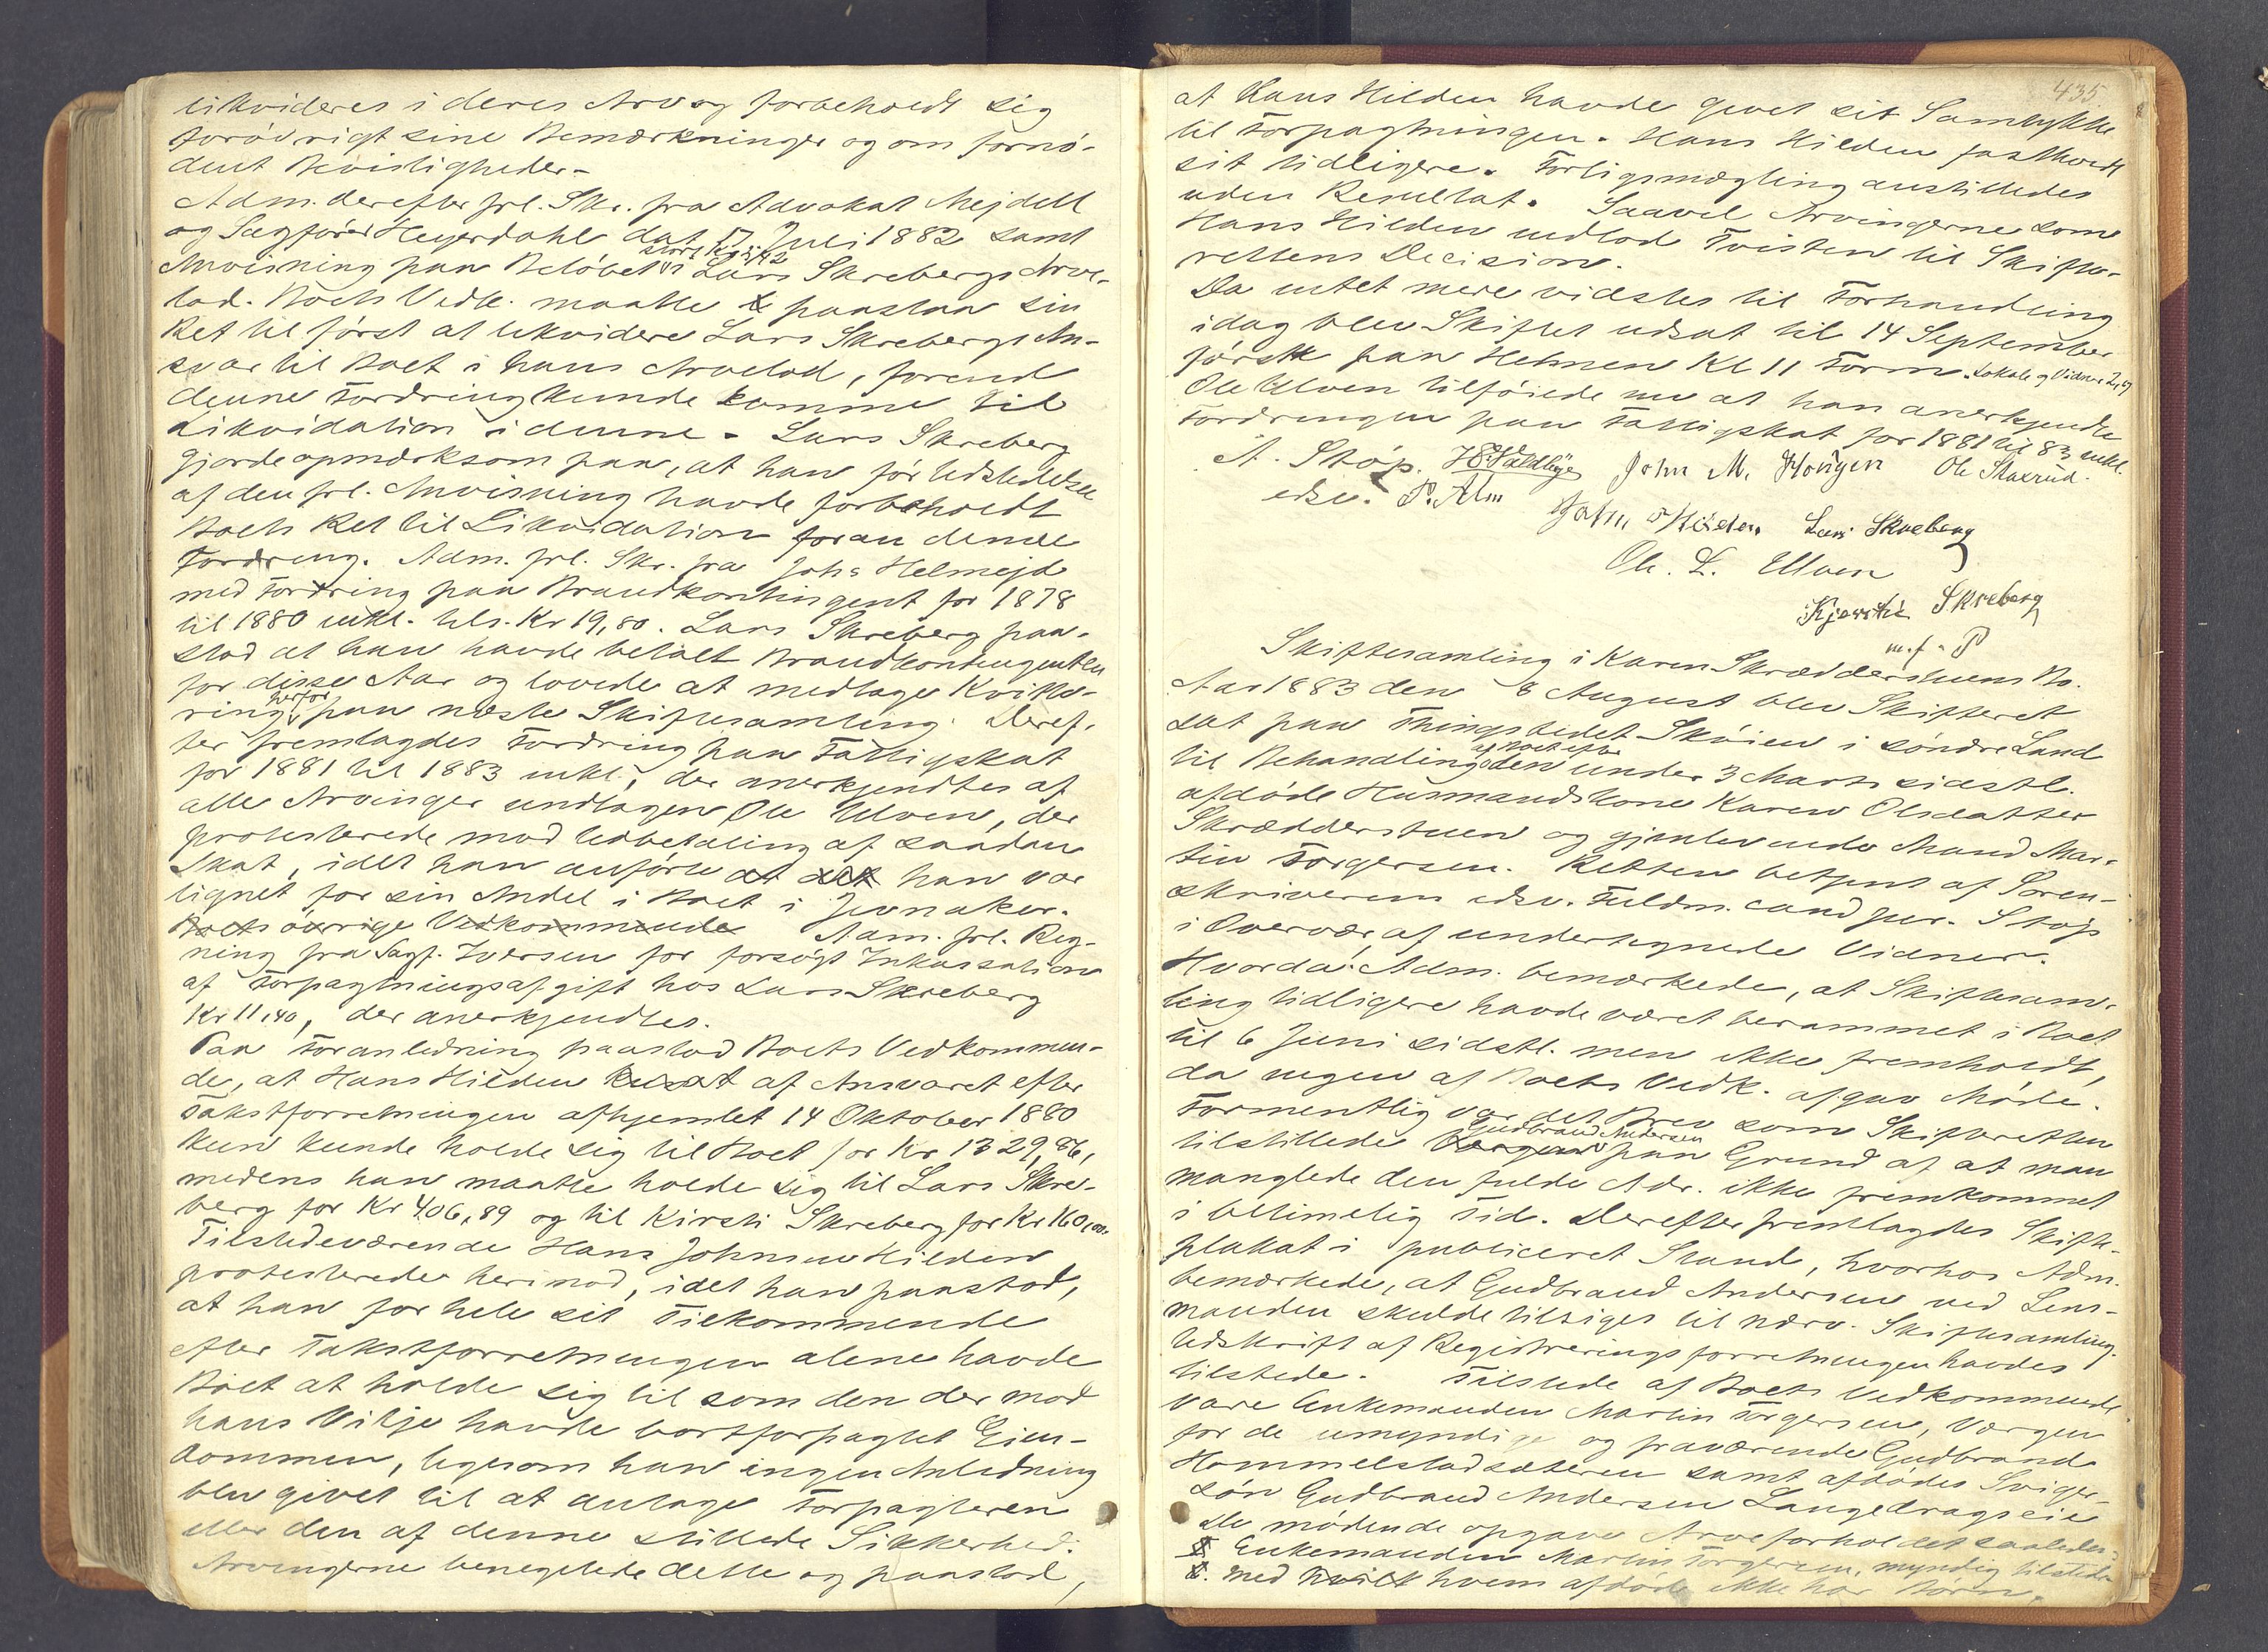 likvideres i deres Arv og forbeholdt sig
forøvrigt sine Bemærkninger og om fornø-
dent Bevisligheder.-
Adm. derefter frl. Skr. fra Advokat Mejdell
og Sagfører Heyerdahl dat. 17 Juli 1882 samt
Anvisning paa Beløbet i Lars Skrebergs Arve-
lod. Boets Vedk. maatte paastaa sin
Ret til først at likvidere Lars Skrebergs An-
svar til Boet i hans Arvelod, forend
denne Fordring kunde komme til
Likvidation i denne. Lars Skreberg
gjorde opmærksom paa, at han før Udstedelsen
af den frl. Anvisning havde forbeholdt
Boets Ret til Likvidation foran denne
Fordring. Adm. frl. Skr. fra Johs Helmejd
med Fordring paa Brandkontingent for 1878
til 1880 inkl. tils. Kr 19,80. Lars Skreberg paa-
stod at han havde betalt Brandkontingenten
for disse Aar og lovede at medtage Kvitte-
ring herfor paa næste Skiftesamling. Deref-
ter fremlagdes Fordring paa Fattigskat
for 1881 til 1883 inkl., der anerkjendtes af
alle Arvinger undtagen Ole Ulven, der
protesterede mod Udbetaling af saadan
Skat, idet han anførte at det han var
lignet for sin Andel i Boet i Jevnaker.
Boets øvrige Vedkommende Adm. frl. Reg-
ning fra Sagf. Iversen for forsøgt Inkassation
af Forpagtningsafgift hos Lars Skreberg
Kr 11,40, der anerkjendtes.
Paa Foranledning paastod Boets Vedkommen-
de, at Hans Hilden af Ansvaret efter
Takstforretningen afhjemlet 14 Oktober 1880
kun kunde holde sig til Boet for Kr 1329,86,
medens han maatte holde sig til Lars Skre-
berg for Kr 406,89 og til Kirsti Skreberg for Kr 160,00.
Tilstedeværende Hans Johnsen Hilden
protesterede herimod, idet han paastod,
at han for hele sit Tilkommende
efter Takstforretningen alene havde
Boet at holde sig til som den der mod
hans Vilje havde bortforpagtet Eien-
dommen, ligesom han ingen Anledning
blev givet til at antage Forpagteren
eller den af denne stillede Sikkerhed.
Arvingerne benegtede dette og paastod,
435
at Hans Hilden havde givet sit Samtykke
til Forpagtningen. Hans Hilden fastholdt
sit tidligere. Forligsmægling anstilledes
uden Resultat. Saavel Arvingerne som
Hans Hilden indlod Tvisten til Skifte-
rettens Decision.
Da intet mere vidstes til Forhandling
idag blev Skiftet udsat til 14 September
førstk paa Helmen Kl 11 Form. Lokale og Vidner
Ole Ulven tilføiede nu at han anerkjendte
Fordringen paa Fattigskat for 1881 til 83 inkl.
A. Støp. John M. Hougen Ole Skaxrud.
edsv. P. Alm John Hilden Lars Skreberg
Ole. L. Ulven
Kjersti Skreberg
m. f. P
Skiftesamling i Karen Skrædderstuens Bo.
Aar 1883 den 8 August blev Skifteret
sat paa Thingstedet Skøien i søndre Land
til Behandling af Boet efter den under 3 Marts sidstl.
afdøde Husmandskone Karen Olsdatter
Skrædderstuen og gjenlevende Mand Mar-
tin Torgersen. Retten betjent af Soren-
skriverens edsv. Fuldm. cand jur. Støp
i Overvær af undertegnede Vidner.
Hvorda: Adm. bemærkede, at Skiftesam-
ling tidligere havde været berammet i Boet
til 6 Juni sidstl. men ikke fremholdt,
da ingen af Boets Vedk. afgav Møde.
Formentlig var det Brev som Skifteretten
tilstillede Værgen Gudbrand Andersen paa Grund af at man
manglede den fulde Adr. ikke fremkommet
i betimelig Tid. Derefter fremlagdes Skifte-
plakat i publiceret Stand, hvorhos Adm.
bemærkede, at Gudbrand Andersen ved Lens-
manden skulde tilsiges til nærv. Skiftesamling.
Udskrift af Registreringsforretningen havdes
tilstede. Tilstede af Boets Vedkommende
vare Enkemanden Martin Torgersen, Værgen
for de umyndige og fraværende Gudbrand
Hommelstadsæteren samt afdødes Sviger-
søn Gudbrand Andersen Langedrageie
De mødende opgave Arveforholdet saaledes:
Enkemanden Martin Torgersen, myndig tilstede
med hvem afdøde ikke har Børn.